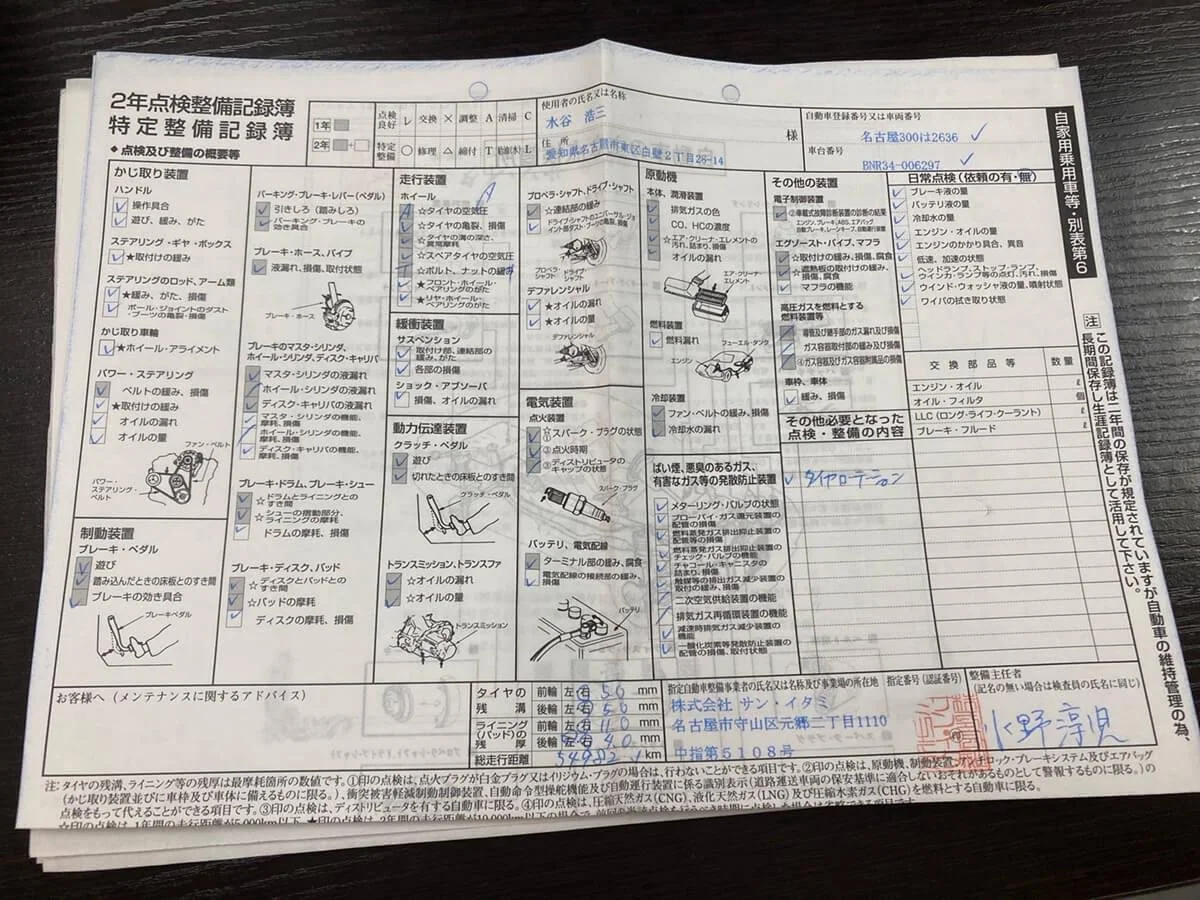 2年点検整備記録簿
特定整備記録簿
1年
2年 +
点検良好 レ 交換 × 調整 A 清掃 C
特定整備 ○ 修理 △ 締付 T 給油(水) L
使用者の氏名又は名称
水谷 浩三
様
住所
愛知県名古屋市東区白壁2丁目26-14
自動車登録番号又は車両番号
名古屋300は2636
車台番号
BNR34-006297
自家用乗用車等・別表第6
◆点検及び整備の概要等
かじ取り装置
ハンドル
操作具合
遊び、緩み、がた
ステアリング・ギヤ・ボックス
★取付けの緩み
ステアリングのロッド、アーム類
★緩み、がた、損傷
ボール・ジョイントのダスト
・ブーツの亀裂、損傷
かじ取り車輪
★ホイール・アライメント
パワー・ステアリング
ベルトの緩み、損傷
★取付けの緩み
オイルの漏れ
オイルの量
ファン・ベルト
パワー・
ステアリング・
ベルト
制動装置
ブレーキ・ペダル
遊び
踏み込んだときの床板とのすき間
ブレーキの効き具合
ブレーキペダル
パーキング・ブレーキ・レバー(ペダル)
引きしろ(踏みしろ)
パーキング・ブレーキの
効き具合
ブレーキ・ホース、パイプ
液漏れ、損傷、取付状態
ブレーキ・ホース
ブレーキのマスタ・シリンダ、
ホイール・シリンダ、ディスク・キャリパ
マスタ・シリンダの液漏れ
ホイール・シリンダの液漏れ
ディスク・キャリパの液漏れ
マスタ・シリンダの機能、
摩耗、損傷
ホイール・シリンダの機能、
摩耗、損傷
ディスク・キャリパの機能、
摩耗、損傷
ブレーキ・ドラム、ブレーキ・シュー
☆ドラムとライニングとの
すき間
☆シューの摺動部分、
ライニングの摩耗
ドラムの摩耗、損傷
ブレーキ・ディスク、パッド
☆ディスクとパッドとの
すき間
☆パッドの摩耗
ディスクの摩耗、損傷
走行装置
ホイール
A ☆タイヤの空気圧
☆タイヤの亀裂、損傷
☆タイヤの溝の深さ、
異常摩耗
☆スペアタイヤの空気圧
T ☆ボルト、ナットの緩み
★フロント・ホイール・
ベアリングのがた
★リヤ・ホイール・
ベアリングのがた
緩衝装置
サスペンション
取付け部、連結部の
緩み、がた
各部の損傷
ショック・アブソーバ
損傷、オイルの漏れ
動力伝達装置
クラッチ・ペダル
遊び
切れたときの床板とのすき間
クラッチ・ペダル
トランスミッション、トランスファ
☆オイルの漏れ
☆オイルの量
トランスミッション
プロペラ・シャフト、ドライブ・シャフト
☆連結部の緩み
ドライブ・シャフトのユニバーサル・ジョ
イント部ダスト・ブーツの亀裂、損傷
プロペラ・
シャフト
ドライブ・
シャフト
デファレンシャル
★オイルの漏れ
★オイルの量
デファレンシャル
電気装置
点火装置
☆①スパーク・プラグの状態
③点火時期
③ディストリビュータの
キャップの状態
スパーク・プラグ
バッテリ、電気配線
ターミナル部の緩み、腐食
電気配線の接続部の緩み、
損傷
バッテリ
原動機
本体、潤滑装置
排気ガスの色
CO、HCの濃度
☆エア・クリーナ・エレメントの
汚れ、詰まり、損傷
オイルの漏れ
エア・クリーナ・
エレメント
燃料装置
燃料漏れ
フューエル・タンク
エンジン
冷却装置
ファン・ベルトの緩み、損傷
冷却水の漏れ
ばい煙、悪臭のあるガス、
有害なガス等の発散防止装置
メターリング・バルブの状態
ブローバイ・ガス還元装置の
配管の損傷
燃料蒸発ガス排出抑止装置の
配管等の損傷
燃料蒸発ガス排出抑止装置の
チェック・バルブの機能
チャコール・キャニスタの
詰まり、損傷
触媒等の排出ガス減少装置の
取付の緩み、損傷
二次空気供給装置の機能
排気ガス再循環装置の機能
減速時排気ガス減少装置の
機能
一酸化炭素等発散防止装置の
配管の損傷、取付状態
その他の装置
電子制御装置
②車載式故障診断装置の診断の結果
エンジン、ブレーキ、ABS、エアバッグ
自動ブレーキ、レーンキープ、自動運行装置
エグゾースト・パイプ、マフラ
☆取付けの緩み、損傷、腐食
☆遮熱板の取付けの緩み、
損傷、腐食
マフラの機能
高圧ガスを燃料とする
燃料装置等
導管及び継手部のガス漏れ及び損傷
ガス容器取付部の緩み及び損傷
④ガス容器及びガス容器附属品の損傷
車枠、車体
緩み、損傷
その他必要となった
点検・整備の内容
レ タイヤローテーション
日常点検(依頼の有・無)
ブレーキ液の量
バッテリ液の量
冷却水の量
エンジン・オイルの量
エンジンのかかり具合、異音
低速、加速の状態
ヘッドランプ、ストップ・ランプ、
ウインカ・ランプ等の点灯、汚れ、損傷
ウインド・ウォッシャ液の量、噴射状態
ワイパの拭き取り状態
交換部品等 数量
エンジン・オイル ℓ
オイル・フィルタ 個
LLC(ロング・ライフ・クーラント) ℓ
ブレーキ・フルード ℓ
注 この記録簿は二年間の保存が規定されていますが自動車の維持管理の為、
長期間保存し生涯記録簿として活用して下さい。
お客様へ(メンテナンスに関するアドバイス)
タイヤの残溝 前輪 左右 5.0 mm
後輪 左右 5.0 mm
ライニング(パッド)の残厚 前輪 左右 11.0 mm
後輪 左右 4.0 mm
総走行距離 54982 km
指定自動車整備事業者の氏名又は名称及び事業場の所在地 指定番号(認証番号)
株式会社 サン・イタミ
名古屋市守山区元郷二丁目1110
中指第5108号
整備主任者
(記名の無い場合は検査員の氏名に同じ)
水野淳児
注:タイヤの残溝、ライニング等の残厚は最摩耗箇所の数値です。①印の点検は、点火プラグが白金プラグ又はイリジウム・プラグの場合は、行わないことができる項目です。②印の点検は、原動機、制動装置、アンチロック・ブレーキシステム及びエアバッグ
(かじ取り装置並びに車枠及び車体に備えるものに限る。)、衝突被害軽減制動制御装置、自動命令型操舵機能及び自動運行装置に係る識別表示(道路運送車両の保安基準に適合しないおそれがあるものとして警報するものに限る。)の
点検をもって代えることができる項目です。③印の点検は、ディストリビュータを有する自動車に限る。④印の点検は、圧縮天然ガス(CNG)、液化天然ガス(LNG)及び圧縮水素ガス(CHG)を燃料とする自動車に限る。
☆印の点検は、1年間の走行距離が5,000km以下、★印の点検は、2年間の走行距離が10,000km以下の場合で